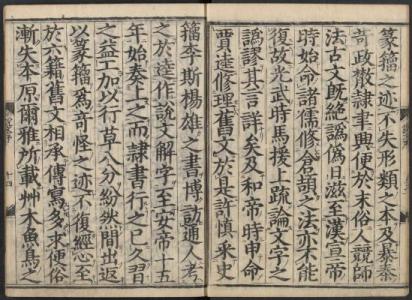 篆籀之迹不失形類之本及暴秦
苛政散隸聿興便於末俗人競師
法古文既絶譌偽日滋至漢宣帝
時始命諸儒修倉頡之法亦不能
復故光武時馬援上疏論文字之
譌謬其言詳矣及和帝時申命
賈逵修理舊文於是許慎采史
籀李斯楊雄之書博訪通人考
之於逵作說文解字至安帝十五
年始奏上之而隸書行之已久習
之益工加以行草八分紛然間出返
以篆籀爲奇怪之迹不復經心至
於六籍舊文相承傳寫多求便俗
漸失本原爾雅所載艸木魚鳥之
十四